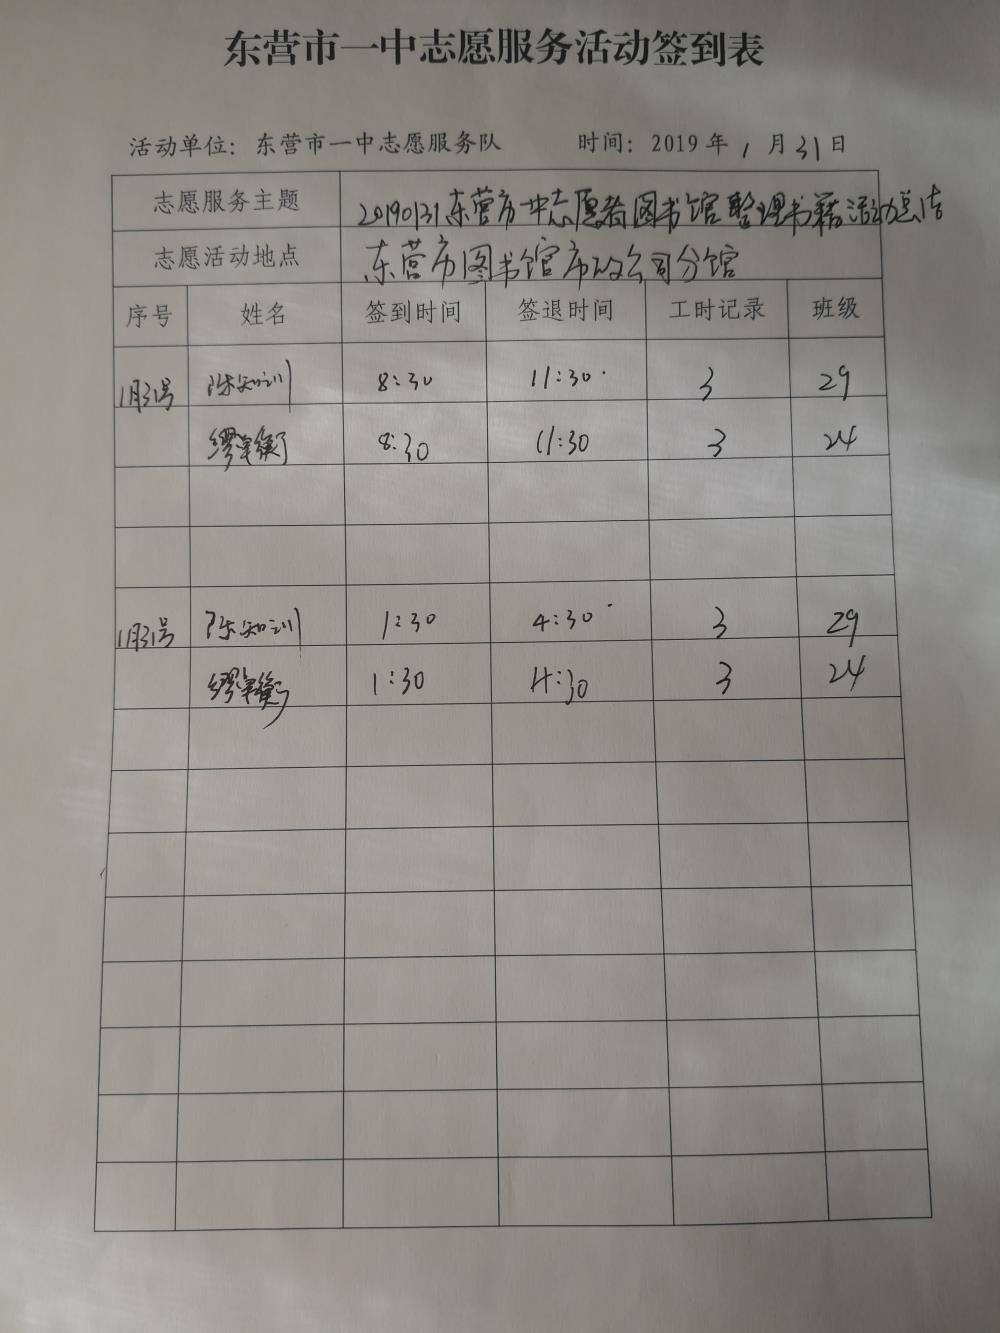 东营市一中志愿服务活动签到表
活动单位：东营市一中志愿服务队 时间：2019年1月31日
志愿服务主题 20190131东营市一中志愿者图书馆整理书籍活动总结
志愿活动地点 东营市图书馆市政公司分馆
序号 姓名 签到时间 签退时间 工时记录 班级
1月31号 陈知训 8:30 11:30 3 29
缪 衡 8:30 11:30 3 24
1月31号 陈知训 1:30 4:30 3 29
缪 衡 1:30 4:30 3 24